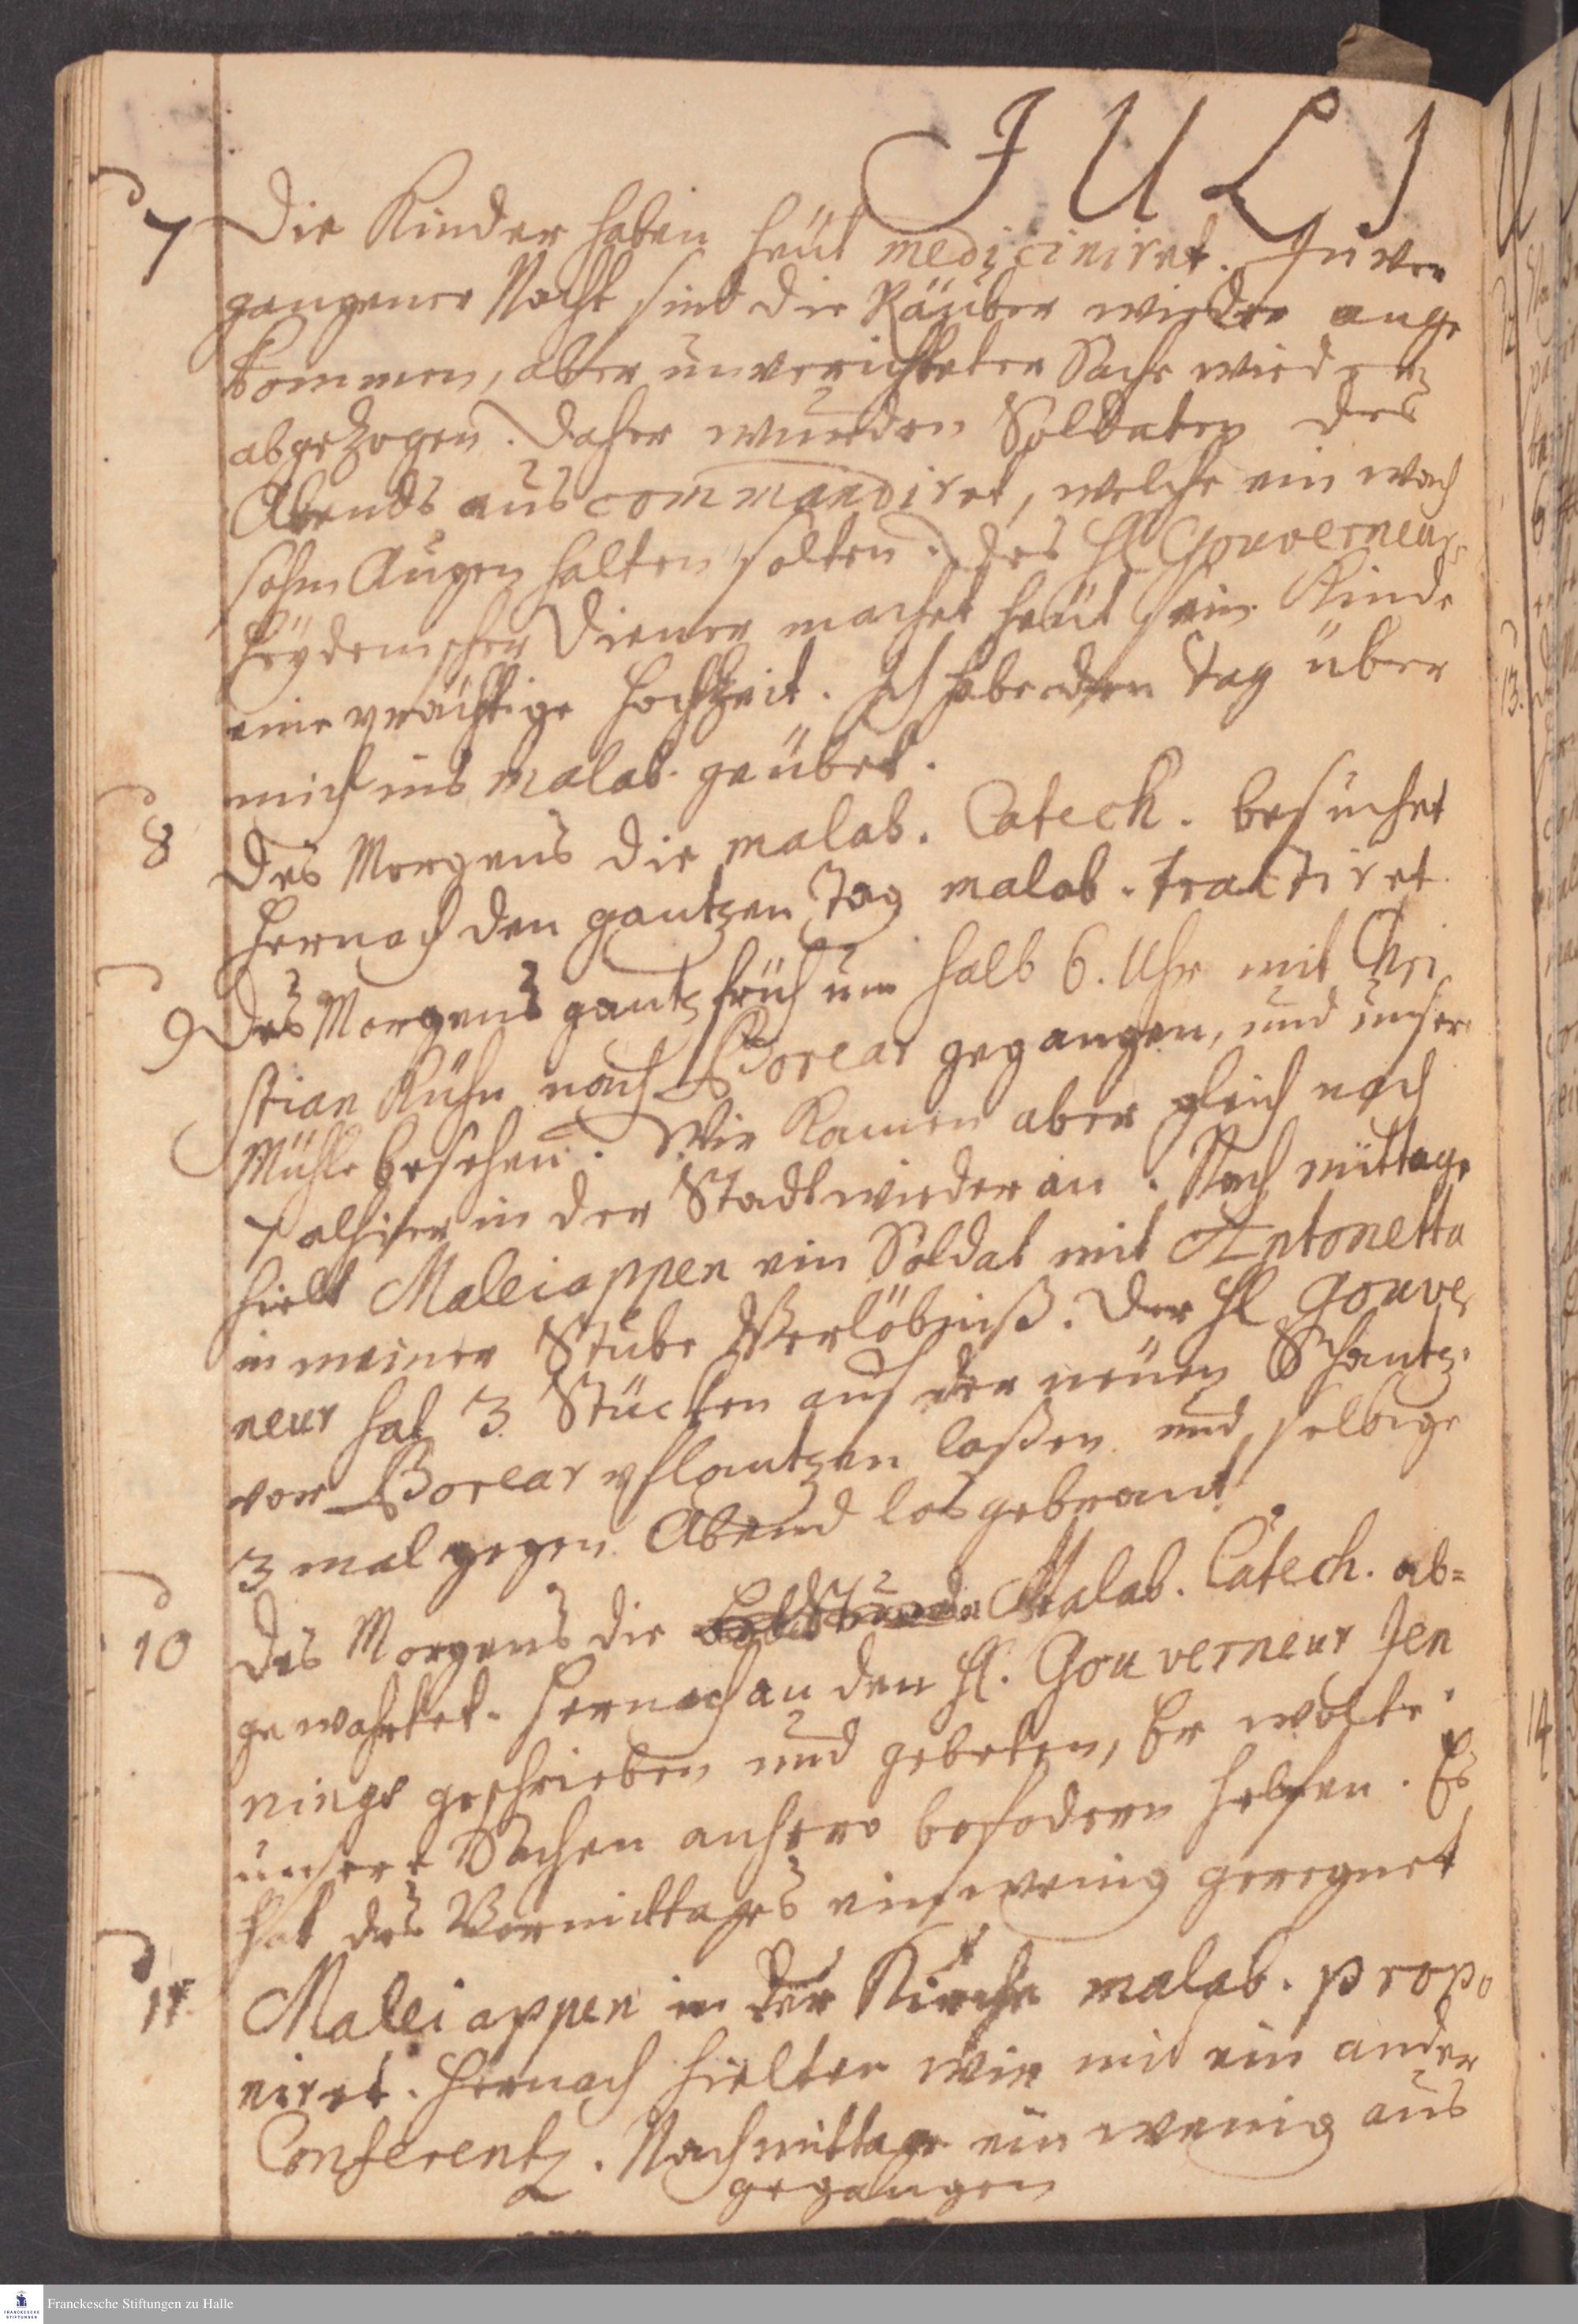 JULI
7 Die Kinder haben heüt mediciniret. In ver
gangener Nacht sind die Räuber wieder ange
kommen, aber unverrichteter Sache wieder
abgezogen. Daher wurden Soldaten des
Abends aus commandiret, welche ein wach
sahm Augen halten solten. Des Hl Gouverneurs
heydenischer Diener machet heüt sein Kinde
eine prächtige Hochzeit. Ich habe den Tag über
mich ins malab. geübet.
8 Des Morgens die malab. Catech. besuchet
hernach den gantzen Tag malab. tractiret.
9 Des Morgens gantz früh um halb 6. Uhr mit Chri
stian Kühn nach Borear gegangen, und unser
Mühle besehen. Wir kamen aber gleich nach
7 alhier in der Stadt wieder an. Nach mittage
hielt Maleiappen ein Soldat mit Antonetta
in meiner Stube Verlöbniß. Der Hl Gouver
neur hat 3. Stücken auf der neuen Schantz
vor Borear pflantzen laßen und selbige
3 mal gegen Abend losgebrant.
10 Des Morgens die Malab. Catech. ab=
gewahrtet. Hernach an den Hl. Gouverneur Jen
nings geschrieben und gebeten, Er wolte
unsere Sachen anhero befodern helfen. Es
hat des Vormittages ein wenig geregnet
11. Maleiappen in der Kirche malab. propo
niret. Hernach hielten wir mit ein ander
Conferentz. Nachmittage ein wenig aus
gegangen
13.
14
Franckesche Stiftungen zu Halle